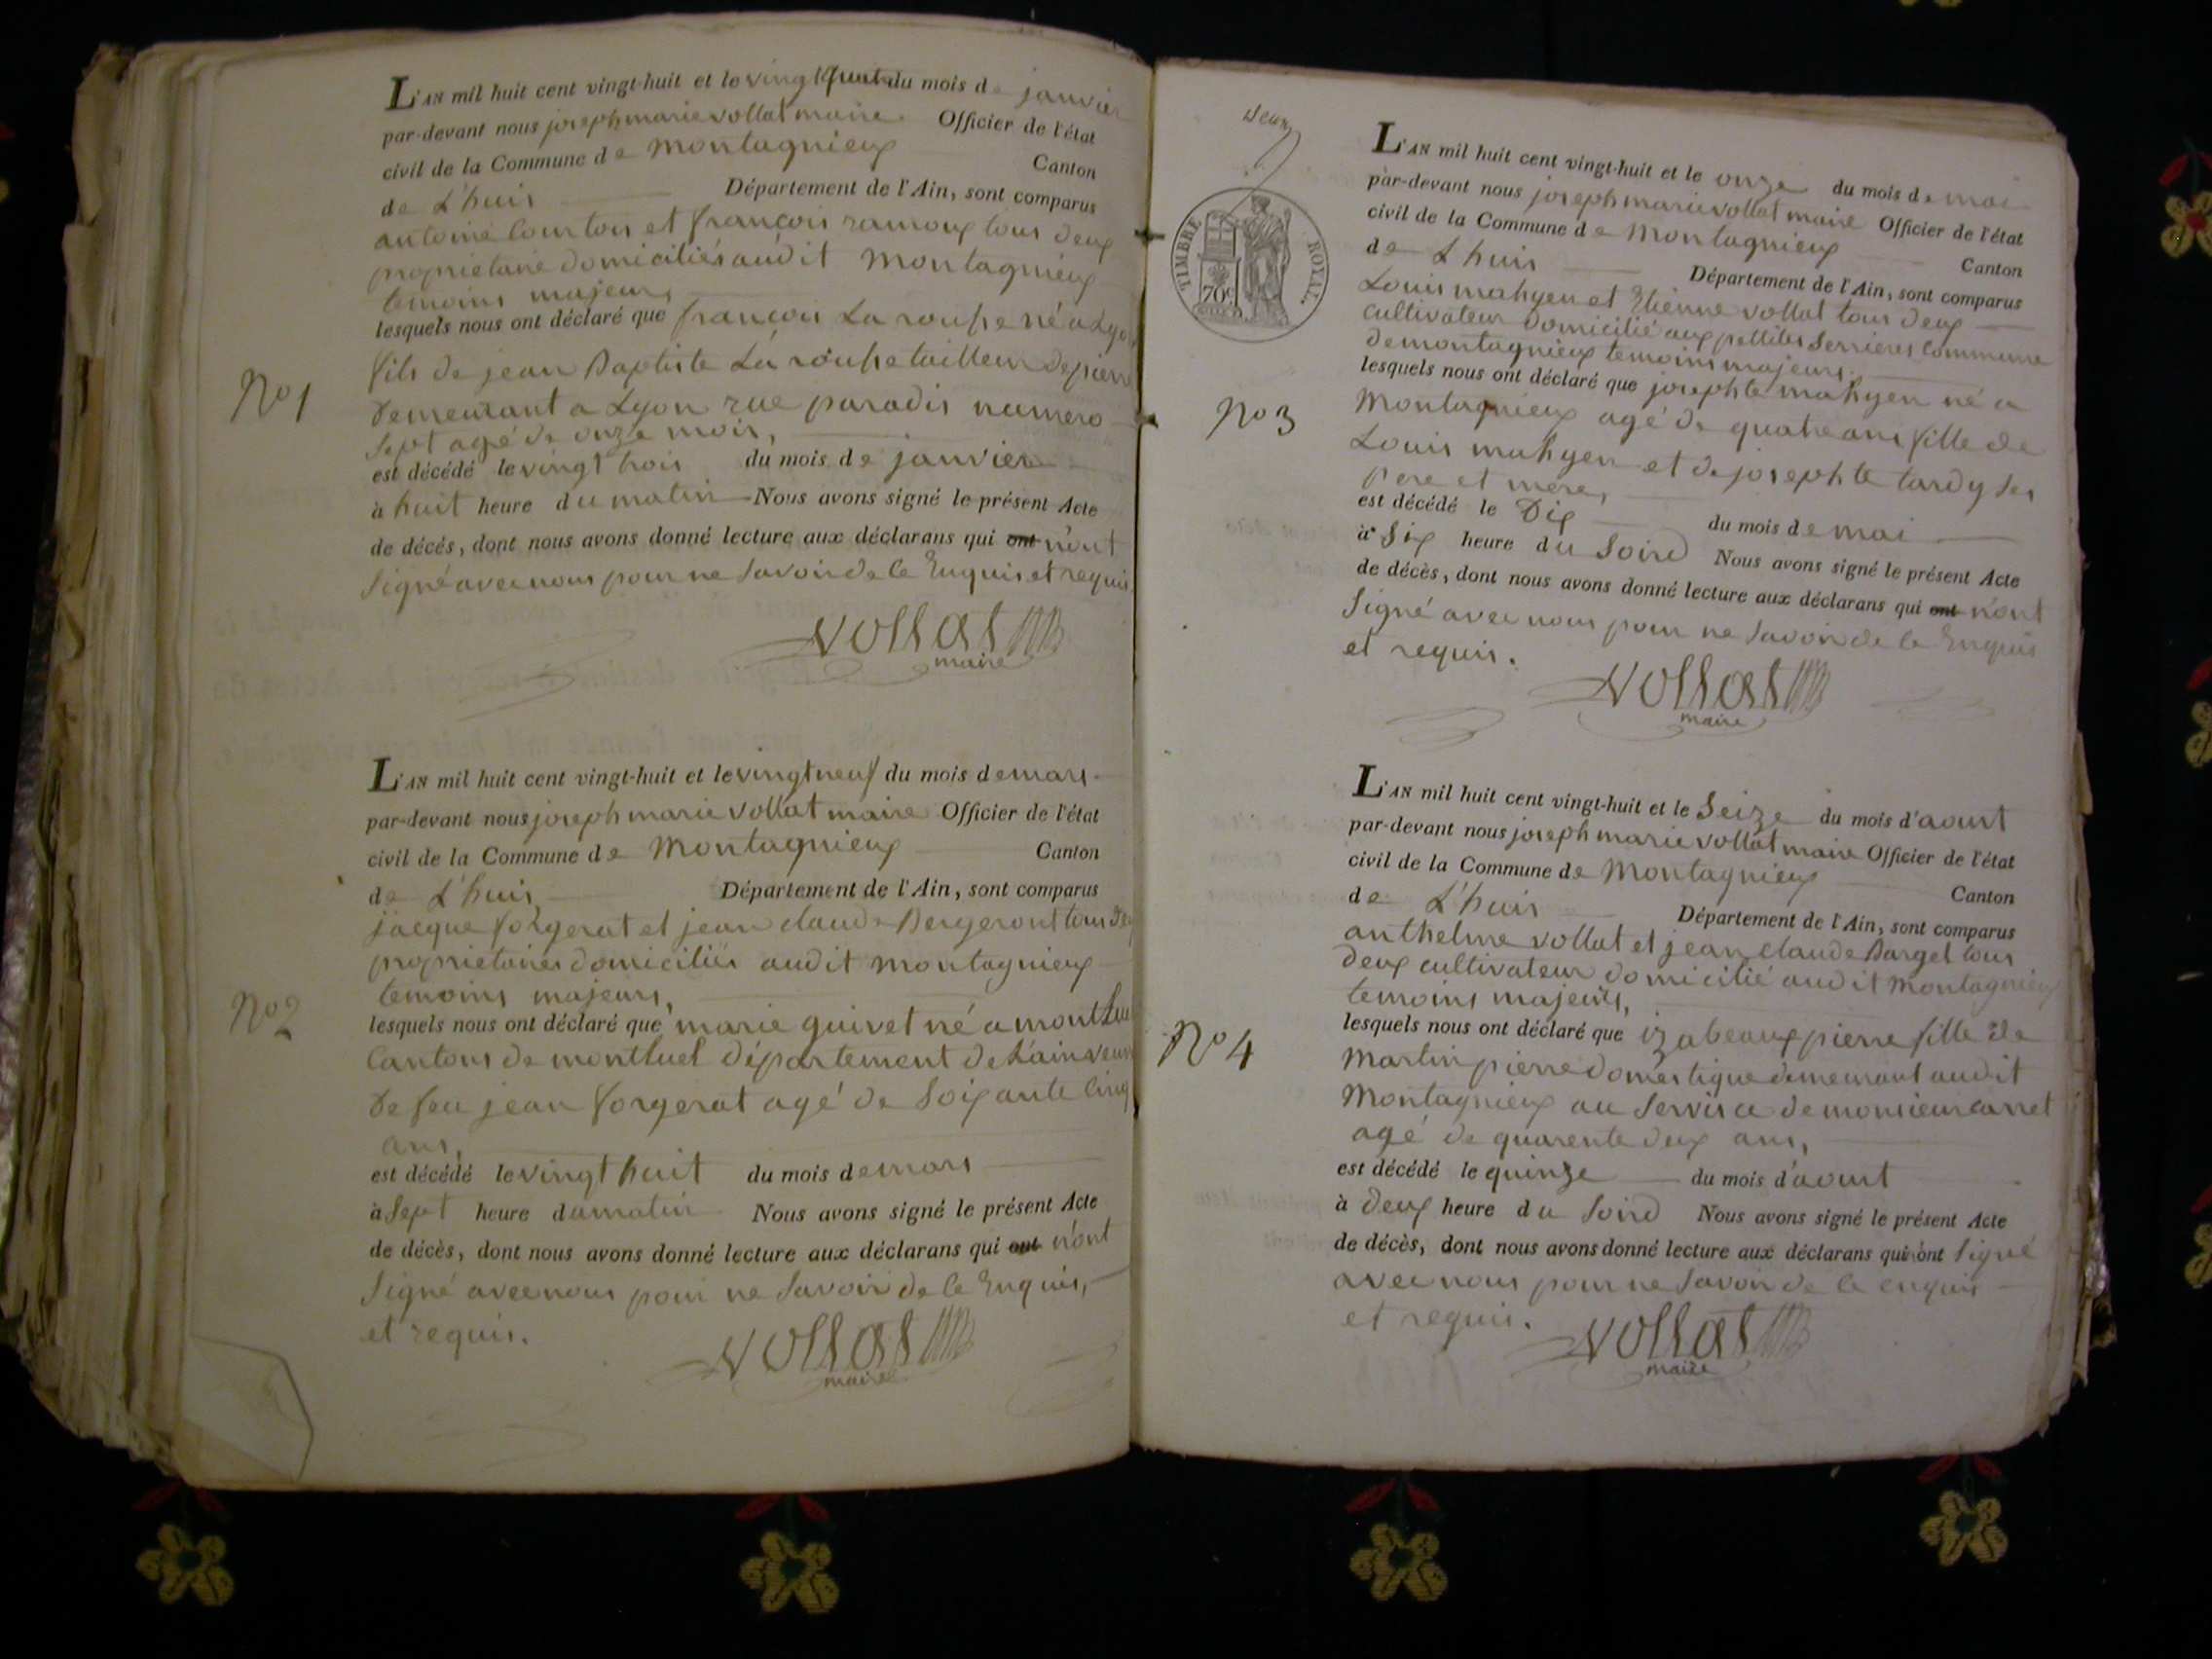 L'AN mil huit cent vingt-huit et le vingt du mois de janvier
par-devant nous joseph marie vollat maire Officier de l'état
civil de la Commune de Montagnieux Canton
de L'huis Département de l'Ain, sont comparus
antoine et françois ramoux tous deux
proprietaire domiciliés audit Montagnieux
temoins majeurs
lesquels nous ont déclaré que françois La rouse né a Lyo
No 1
fils de jean Baptiste La roupe tailleur de pierre
demeurant a Lyon rue paradis numero
sept agé de onze mois,
est décédé le vingt trois du mois de janvier
à huit heure du matin Nous avons signé le présent Acte
de décés, dont nous avons donné lecture aux déclarans qui ont n'ont
signé avec nous pour ne savoir de le Enquis et requis
vollat
maire
L'AN mil huit cent vingt-huit et le vingt neuf du mois de mars
par-devant nous joseph marie vollat maire Officier de l'état
civil de la Commune de Montagnieux Canton
de L'huis Département de l'Ain, sont comparus
jacque forgerat et jean claude Bergeront tous deu
proprietaires domiciliés audit Montagnieux
temoins majeurs,
No 2
lesquels nous ont déclaré que marie guivet né a montlue
Cantons de montluel département de L'ain veuve
de feu jean forgerat agé de soixante cinq
ans,
est décédé le vingt huit du mois de mars
à sept heure du matin Nous avons signé le présent Acte
de décès, dont nous avons donné lecture aux déclarans qui ont n'ont
signé avec nous pour ne savoir de le Enquis,
et requis.
vollat
maire
deux
TIMBRE ROYAL.
70c
L'AN mil huit cent vingt-huit et le onze du mois de mai
par-devant nous joseph marie vollat maire Officier de l'état
civil de la Commune de Montagnieux Canton
de L'huis Département de l'Ain, sont comparus
Louis mahyen et Etienne vollat tous deux
cultivateur domicilié aux pettites Serrieres Commune
de montagnieux temoins majeurs.
lesquels nous ont déclaré que josephte mahyen né a
No 3
Montagnieux agé de quatre ans fille de
Louis mahyen et de josephte tardy ses
pere et mere,
est décédé le Dix du mois de mai
à six heure du soird Nous avons signé le présent Acte
de décès, dont nous avons donné lecture aux déclarans qui ont n'ont
signé avec nous pour ne savoir de le Enquis
et requis.
vollat
maire
L'AN mil huit cent vingt-huit et le seize du mois d'aoust
par-devant nous joseph marie vollat maire Officier de l'état
civil de la Commune de Montagnieux Canton
de L'huis Département de l'Ain, sont comparus
anthelme vollat et jean claude Barget tous
deux cultivateur domicilié audit Montagnieux
temoins majeurs,
lesquels nous ont déclaré que izabeaux pierre fille de
No 4
Martin pierre domestique demeurant audit
Montagnieux au service de monsieur carret
agé de quarente deux ans,
est décédé le quinze du mois d'aoust
à deux heure du soird Nous avons signé le présent Acte
de décès, dont nous avons donné lecture aux déclarans qui n'ont signé
avec nous pour ne savoir de le enquis
et requis.
vollat
maire